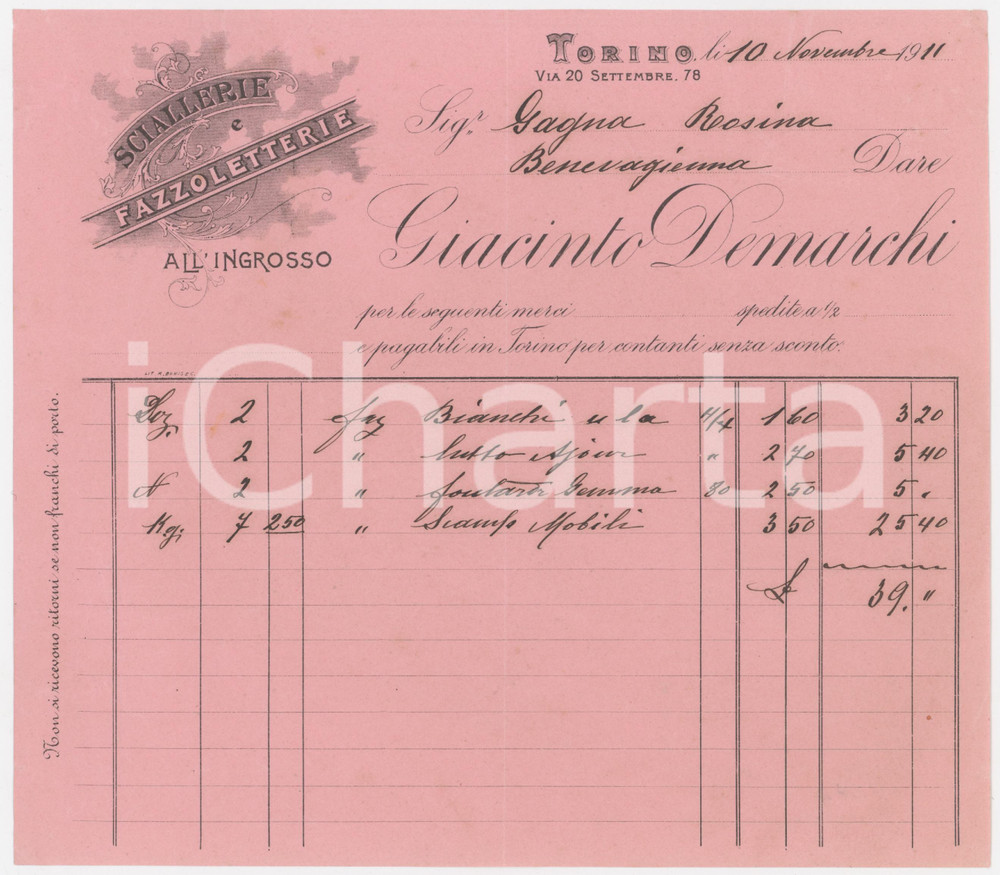 SCIALLERIE
e
FAZZOLETTERIE
ALL'INGROSSO
TORINO, li 10 Novembre 1911
VIA 20 SETTEMBRE. 78
Sigr. Gagna Rosina
Benevagienna Dare
Giacinto Demarchi
per le seguenti merci spedite a 1/2
e pagabili in Torino per contanti senza sconto.
Doz. 2 faz Bianchi u la 4/4 1 60 3 20
2 " lutto Ajour " 2 70 5 40
N 2 " Gemma 80 2 50 5 "
Kg. 7 250 " Scamp Mobili 3 50 25 40
£ 39. "
Non si ricevono ritorni se non franchi di porto.
iCharta